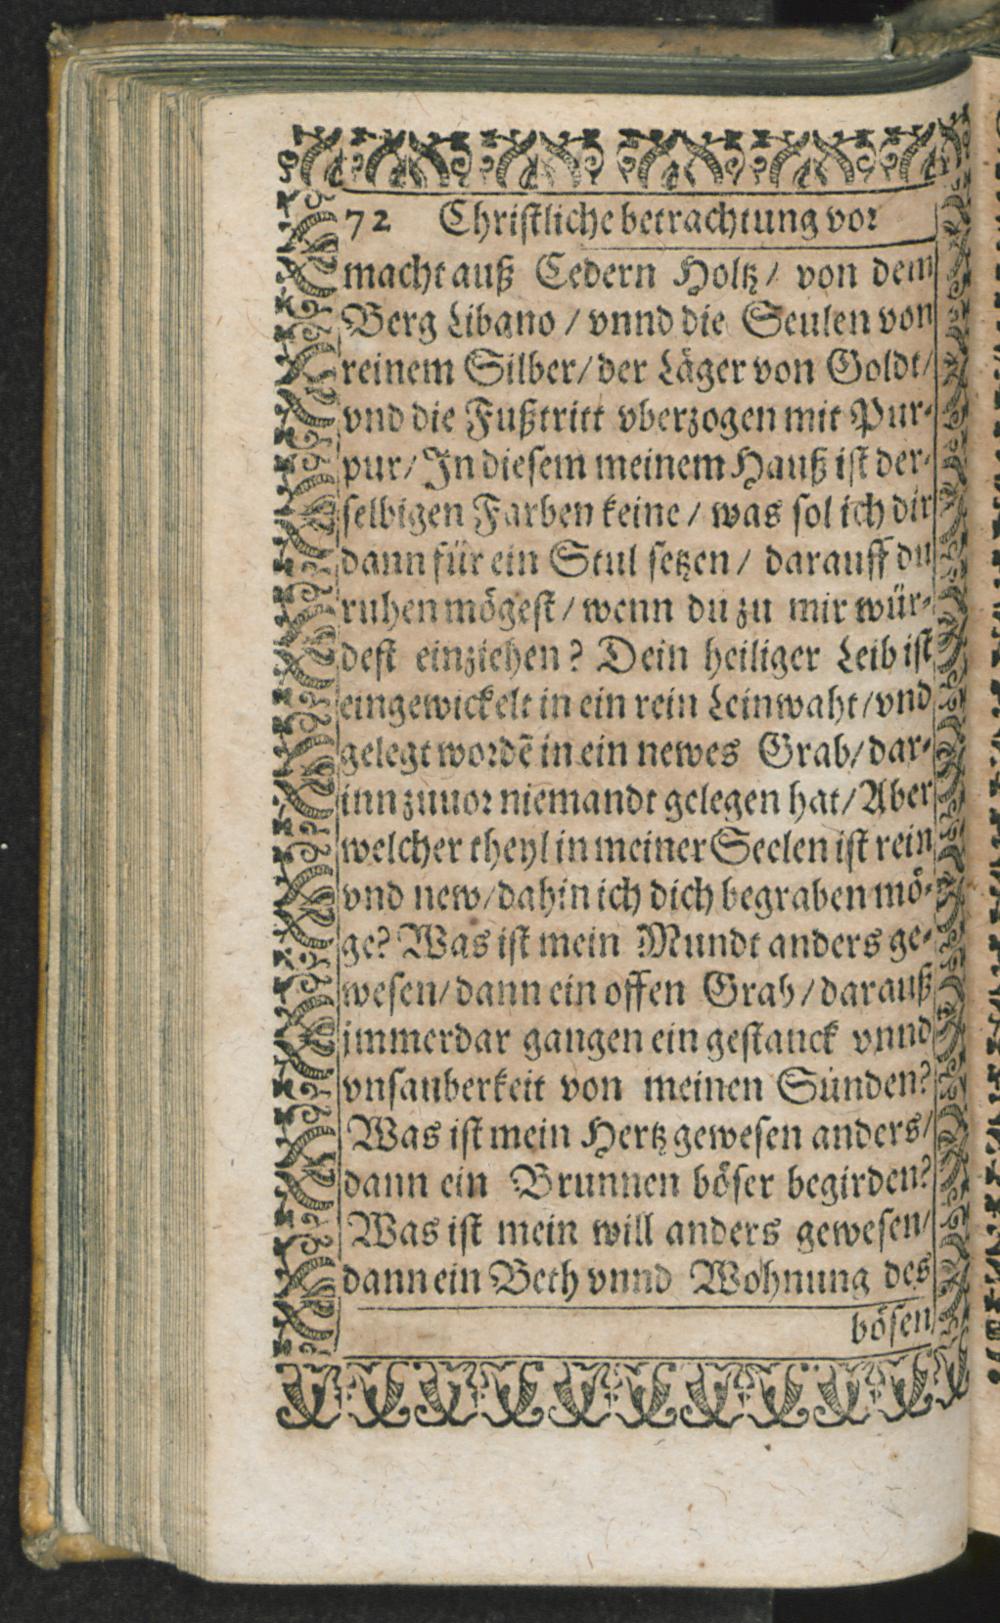 72 Christliche betrachtung vor
macht auß Cedern Holtz / von dem
Berg Libano / vnnd die Seulen von
reinem Silber / der Läger von Goldt /
vnd die Fußtritt vberzogen mit Pur-
pur / In diesem meinem Hauß ist der-
selbigen Farben keine / was sol ich dir
dann für ein Stul setzen / darauff du
ruhen mögest / wenn du zu mir wür-
dest einziehen? Dein heiliger Leib ist
eingewickelt in ein rein Leinwaht / vnd
gelegt wordẽ in ein newes Grab / dar-
inn zuuor niemandt gelegen hat / Aber
welcher theyl in meiner Seelen ist rein
vnd new / dahin ich dich begraben mö-
ge? Was ist mein Mundt anders ge-
wesen / dann ein offen Grab / darauß
immerdar gangen ein gestanck vnnd
vnsauberkeit von meinen Sünden?
Was ist mein Hertz gewesen anders /
dann ein Brunnen böser begirden?
Was ist mein will anders gewesen /
dann ein Beth vnnd Wohnung des
bösen